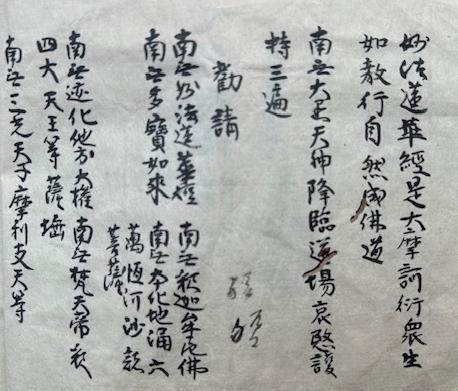 妙法蓮華經是大摩訶衍衆生
如教行自然成佛道
南无大黒天神降臨道場哀愍護
持三遍
勸請
南无妙法蓮華經 南无釈迦牟尼佛
南无多寶如來 南无本化地涌六
萬恒河沙諸
菩薩
南无迹化他方大權 南无梵天帝釈
四大天王等薩埵
南无三光天子摩利支天等